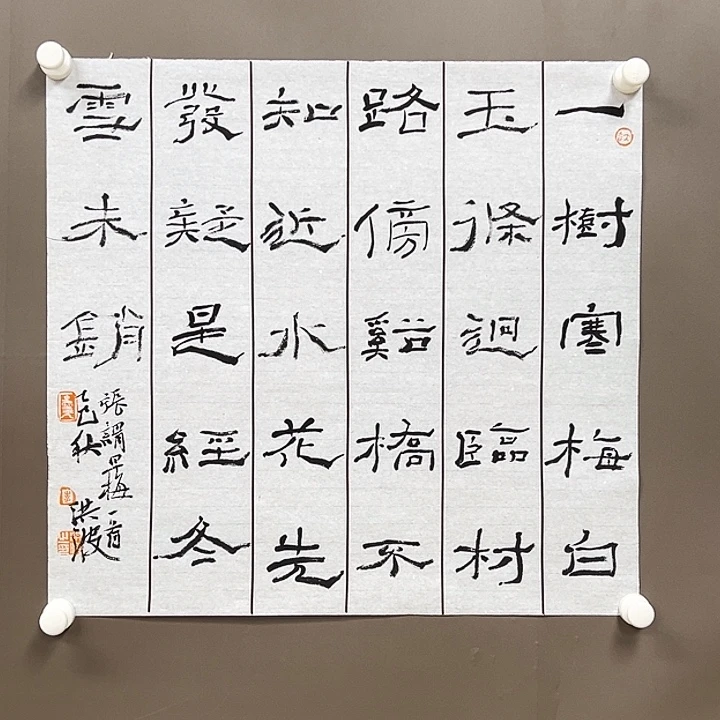 一樹寒梅白
玉條迥臨村
路傍谿橋不
知近水花先
發疑是經冬
雪未銷
張謂早梅一首
乙巳秋
洪波